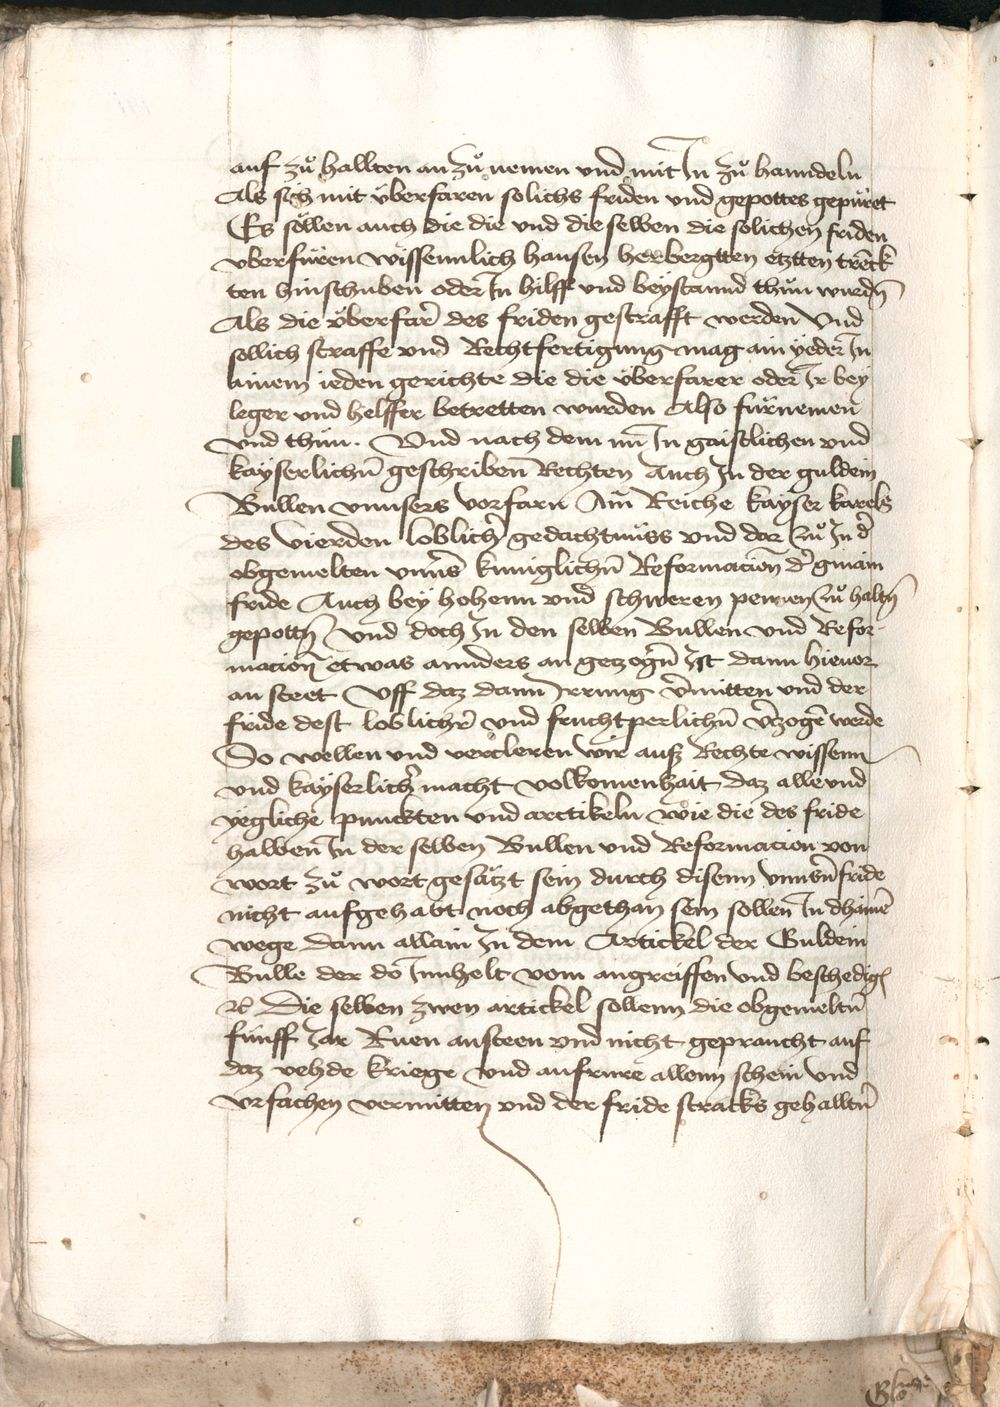 auf zů hallten an zů nemen und mit Jn zů hanndeln
Als sich mit überfaren solichs friden und gepottes gepüret
Es söllen auch die die vnd die selben die solichen friden
vberfüren wissennlich hausen herbergtten etztten trēck
ten hinschuben oder Jn hilff vnd beystannd thun wurdn̄
Als die überfar̄ des friden gestrafft werden Vnd
sollich straffe vnd Rechtfertigung mag ain yeder Jn
ainem ieden gerichte die die überfarer oder Jr bey
leger vnd helffer betretten wurden Also fürnemen
vnd thun. Vnd nach dem nu Jn gaistlichen vnd
kayserlichn̄ geschriben Rechten Auch Jn der guldein
Bullen vnnsers vorfarn Am̄ Reiche kayser karels
des vierden loblichr̄ gedachtnüss vnd dar zů Jn dr̄
obgemelten vnnsr̄ kuniglichn̄ Reformacion dr̄ gmain
fride Auch bey hohenn vnd schweren penen zů haltn̄
gepottn̄ Vnd doch Jn den selben Bullen vnd Refor-
macion etwas annders an getzogn̄ Jst dann hieuor
an steet Vff daz dann Jrrung v̄mitten vnd der
fride dest loblichr̄ vnd fruchtperlichn̄ v̄zogē werde
So wellen vnd vercleren wir auß Rechte wissenn
vnd kayserlichr̄ macht volkomenhait daz alle vnd
yegliche punckten vnd arctikeln wie die des fride
halben Jn der selben Bullen vnd Reformacion von
wort zů wort gesätzt sein durch disenn vnnsn̄ fride
nicht aufgehabt noch abgethan sein sollen Jn dhainē
wege dann allain Jn dem Artickel der Guldein
Bulle der do Jnnhelt vom angreiffen vnd beschedign̄
⁊c̄ Die selben zwen artickel sollenn die obgemeltn̄
fünff Jar Ruen ansteen vnd nicht gepraucht auf
daz vehde kriege vnd aufrure allenn schein vnd
vrsachen vermitten vnd der fride stracks gehalltn̄